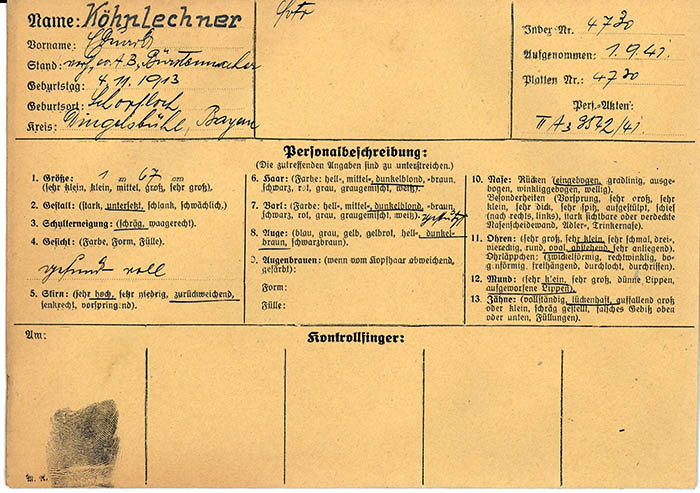 Name: Köhnlechner
Vorname:
Stand: Bürstenmacher
Geburtstag: 4. 11. 1913
Geburtsort: Schopfloch,
Kreis: Dingelsbühl, Bayern
Foto
Index Nr. 4730
Aufgenommen: 1. 9. 41.
Platten Nr.: 4730
Pers.-Akten:
II A3 9542/41.
Personalbeschreibung:
(Die zutreffenden Angaben sind zu unterstreichen).
1. Größe: 1 m 67 cm
(sehr klein, klein, mittel, groß, sehr groß).
2. Gestalt: (stark, untersetzt, schlank, schwächlich.)
3. Schulterneigung: (schräg, waagerecht.)
4. Gesicht: (Farbe, Form, Fülle).
gesund voll
5. Stirn: (sehr hoch, sehr niedrig, zurückweichend,
senkrecht, vorspringend).
6. Haar: (Farbe: hell-, mittel-, dunkelblond, -braun,
schwarz, rot, grau, graugemischt, weiß).
7. Bart: (Farbe: hell-, mittel-, dunkelblond, -braun,
schwarz, rot, grau, graugemischt, weiß). gestutzt
8. Auge: (blau, grau, gelb, gelbrot, hell-, dunkel-
braun, schwarzbraun).
9. Augenbrauen: (wenn vom Kopfhaar abweichend,
gefärbt):
Form:
Fülle:
10. Nase: Rücken (eingebogen, gradlinig, ausge-
bogen, winkliggebogen, wellig).
Besonderheiten (Vorsprung, sehr groß, sehr
klein, sehr dick, sehr spitz, aufgestülpt, schief
(nach rechts, links), stark sichtbare oder verdeckte
Nasenscheidewand, Adler-, Trinkernase).
11. Ohren: (sehr groß, sehr klein, sehr schmal, drei-,
viereckig, rund, oval, abstehend, sehr anliegend).
Ohrläppchen: (zwickelförmig, rechtwinklig, bo-
genförmig, freihängend, durchlocht, durchrissen).
12. Mund: (sehr klein, sehr groß, dünne Lippen,
aufgeworfene Lippen).
13. Zähne: (vollständig, lückenhaft, auffallend groß
oder klein, schräg gestellt, falsches Gebiß oben
oder unten, Füllungen).
Am:
Kontrollfinger: